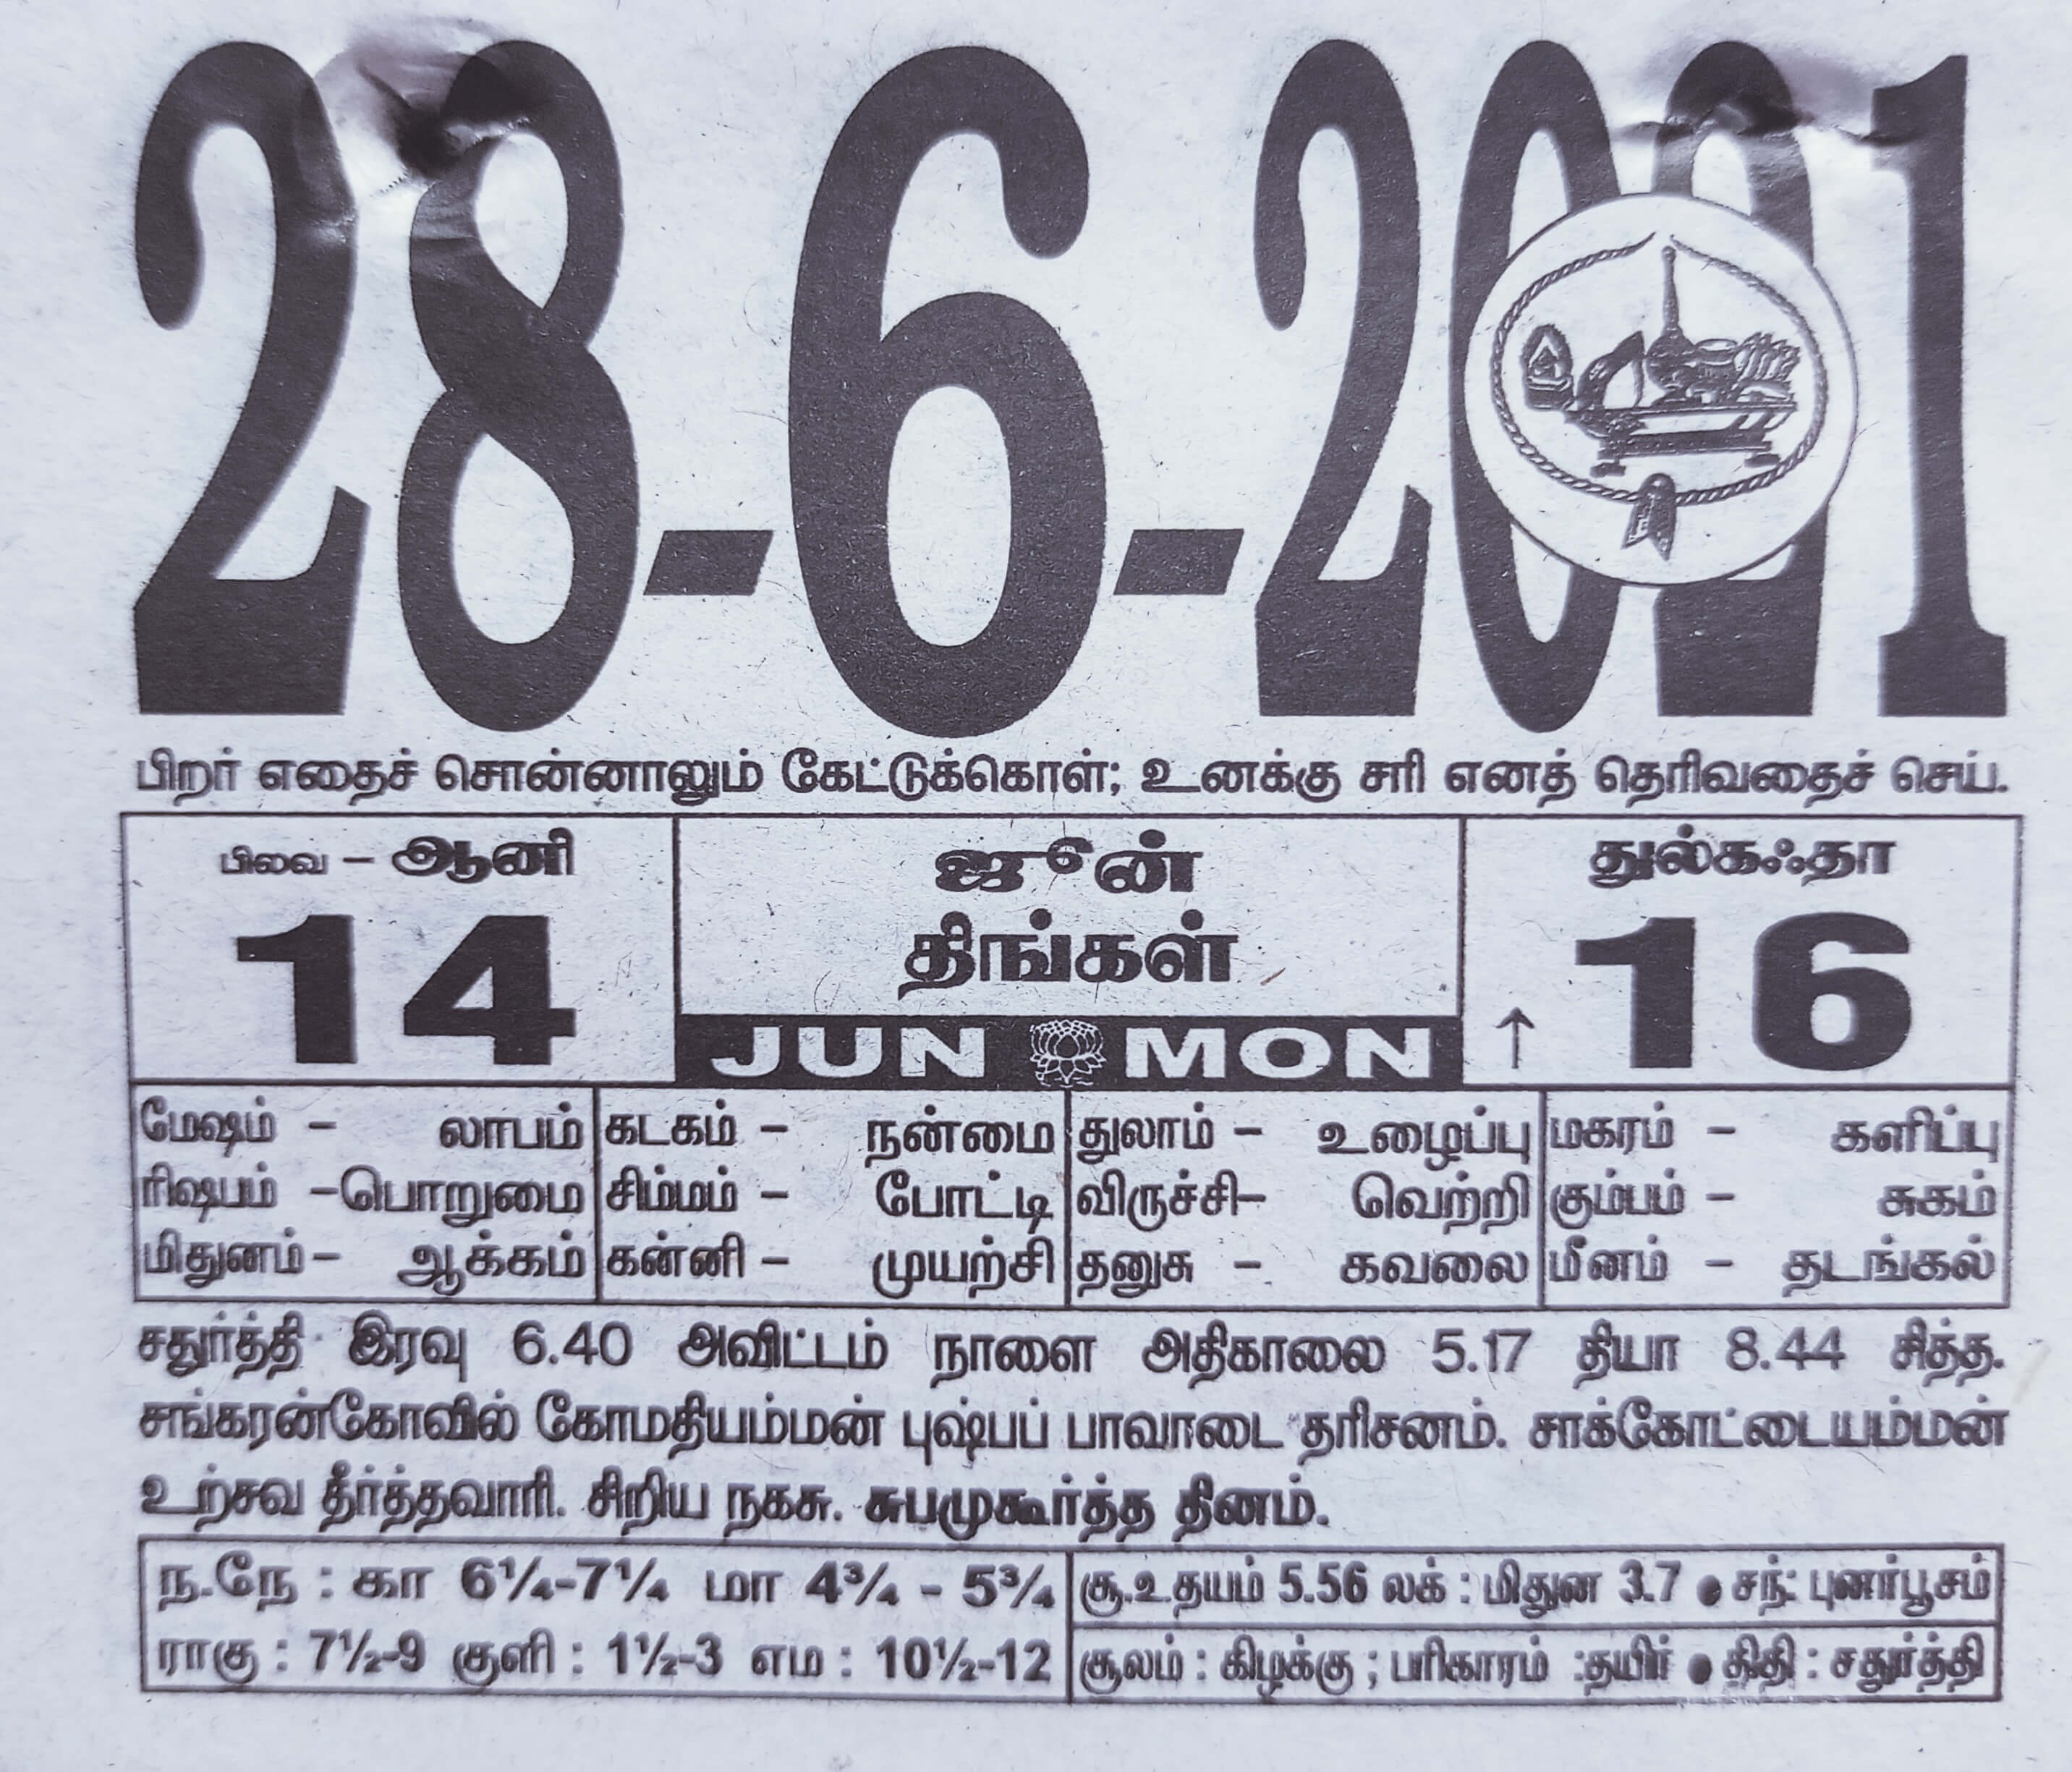 28-6-2021
பிறர் எதைச் சொன்னாலும் கேட்டுக்கொள்; உனக்கு சரி எனத் தெரிவதைச் செய்.
பிலவ – ஆனி
14
ஜூன்
திங்கள்
JUN MON
துல்கஃதா
↑ 16
மேஷம் – லாபம்
ரிஷபம் –பொறுமை
மிதுனம்– ஆக்கம்
கடகம் – நன்மை
சிம்மம் – போட்டி
கன்னி – முயற்சி
துலாம் – உழைப்பு
விருச்சி– வெற்றி
தனுசு – கவலை
மகரம் – களிப்பு
கும்பம் – சுகம்
மீனம் – தடங்கல்
சதுர்த்தி இரவு 6.40 அவிட்டம் நாளை அதிகாலை 5.17 தியா 8.44 சித்த.
சங்கரன்கோவில் கோமதியம்மன் புஷ்பப் பாவாடை தரிசனம். சாக்கோட்டையம்மன்
உற்சவ தீர்த்தவாரி. சிறிய நகசு. சுபமுகூர்த்த தினம்.
ந.நே : கா 6¼-7¼ மா 4¾ - 5¾
ராகு : 7½-9 குளி : 1½-3 எம : 10½-12
சூ.உதயம் 5.56 லக் : மிதுன 3.7 ● சந்: புனர்பூசம்
சூலம் : கிழக்கு ; பரிகாரம் :தயிர் ● திதி : சதுர்த்தி